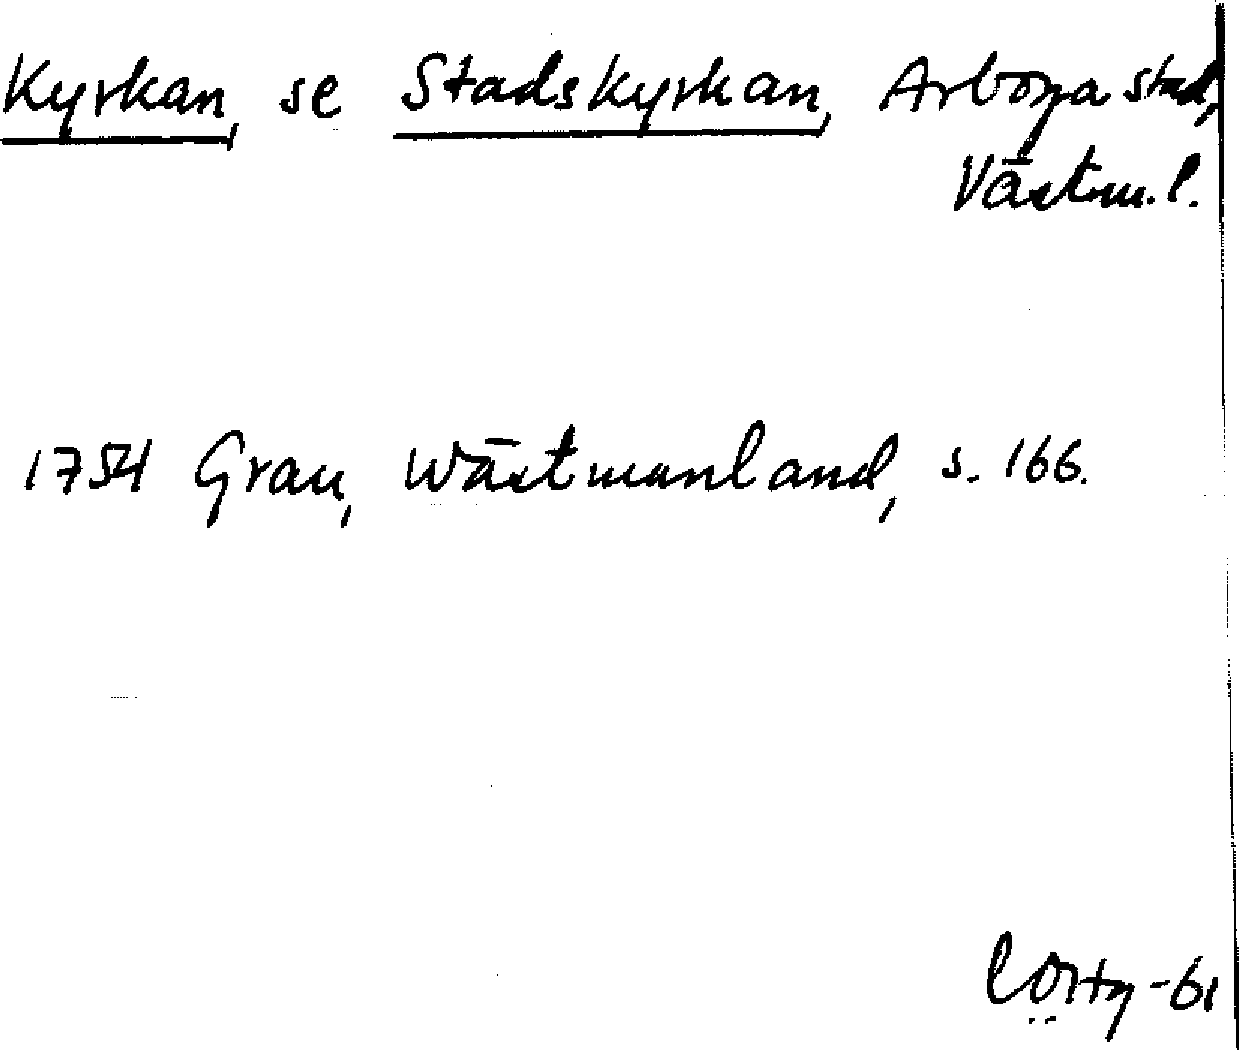 Kyrkan, se Stadskyrkan, Arboga stad,
Västm. l.
1754 Grau, Wästmanland, s. 166.
-61